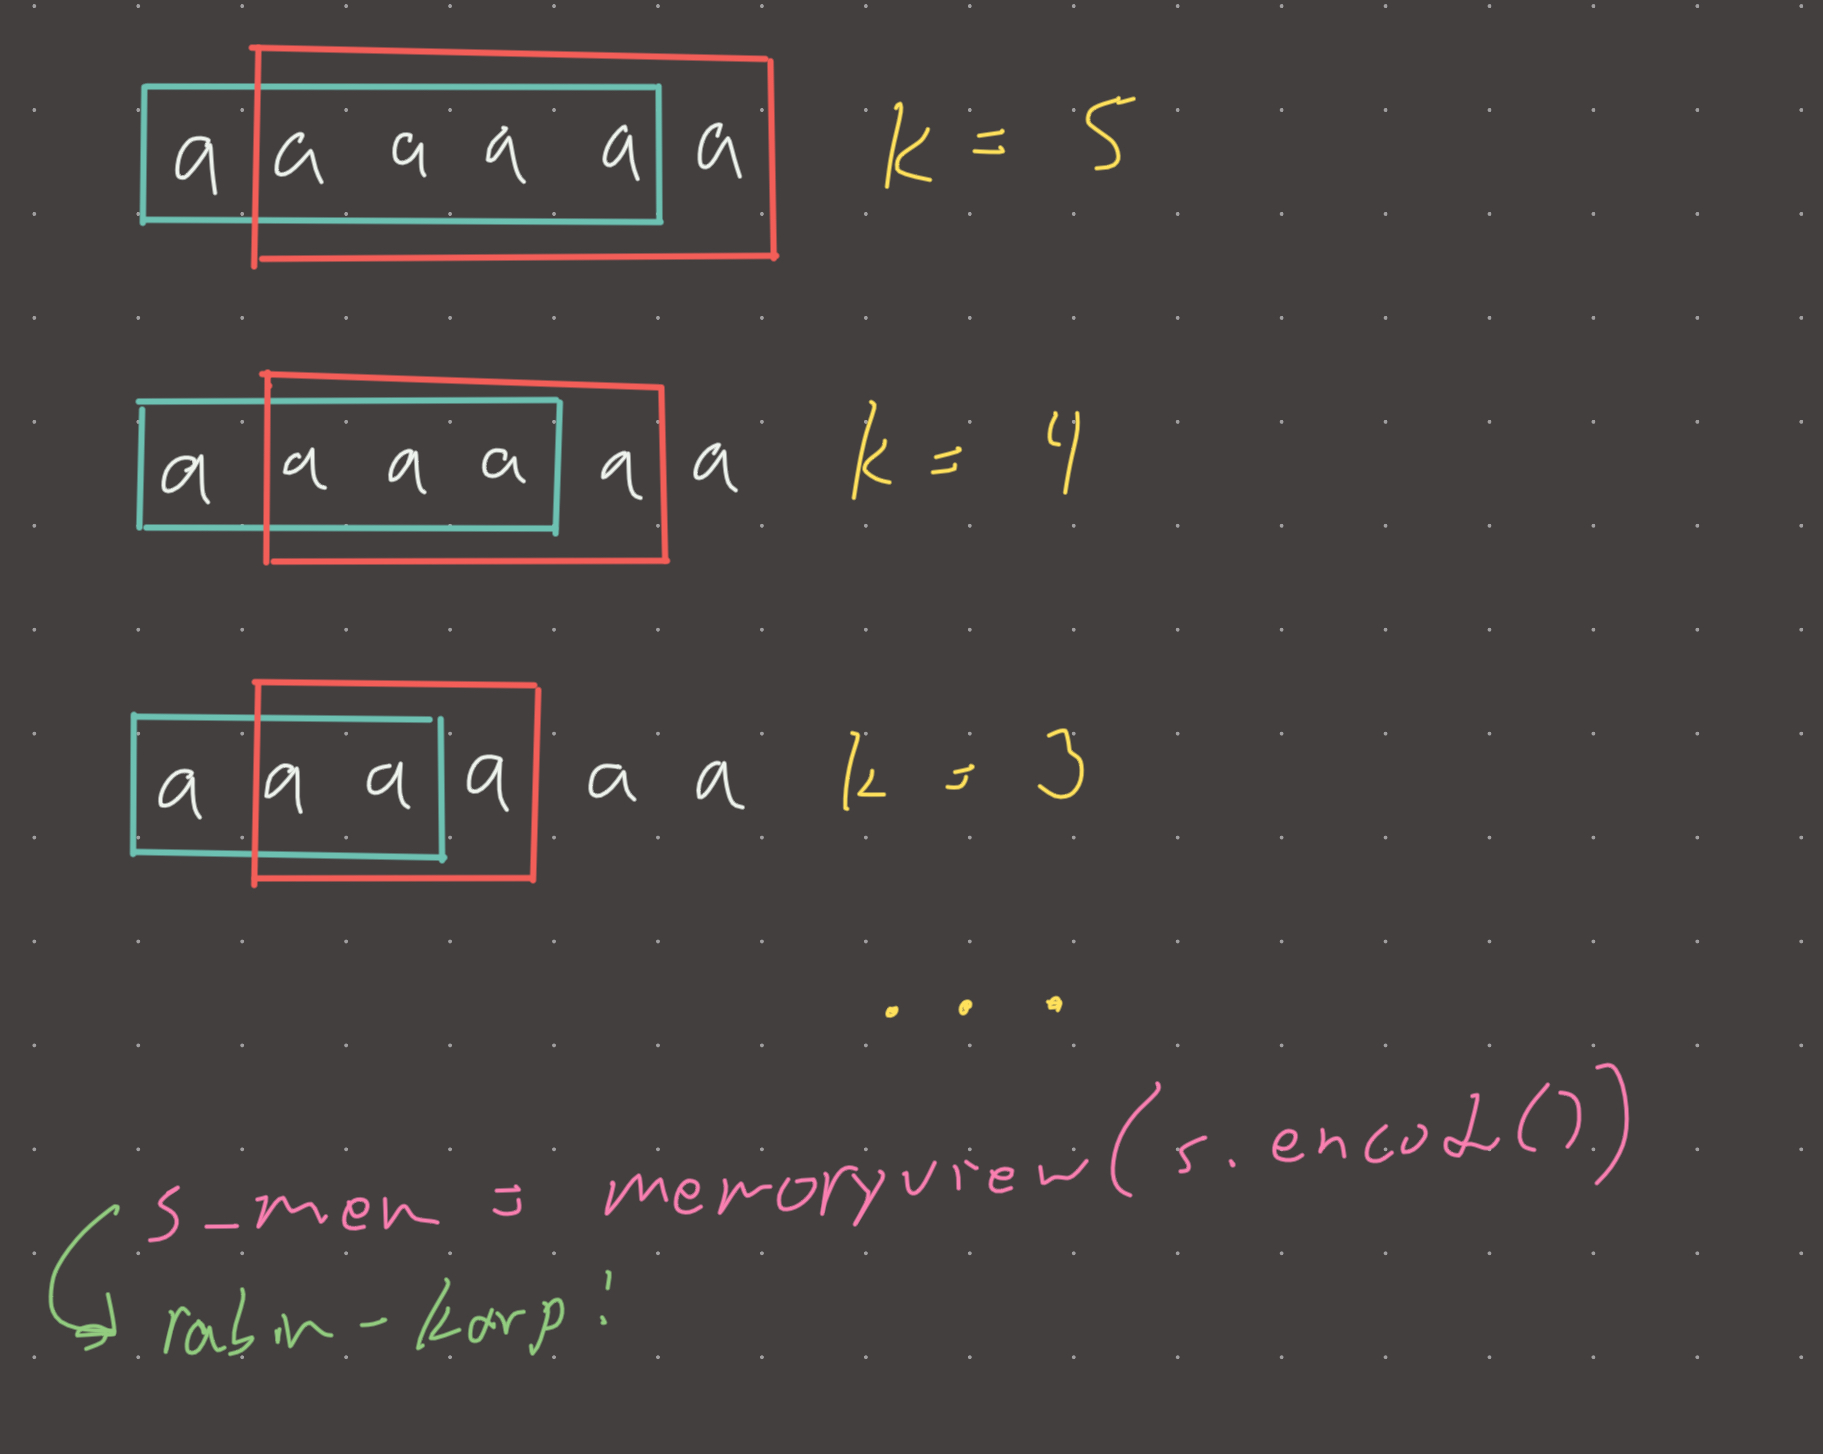 a a a a a a k = 5
a a a a a a k = 4
a a a a a a k = 3
...
s_mem = memoryview(s.encod())
rabin-karp!